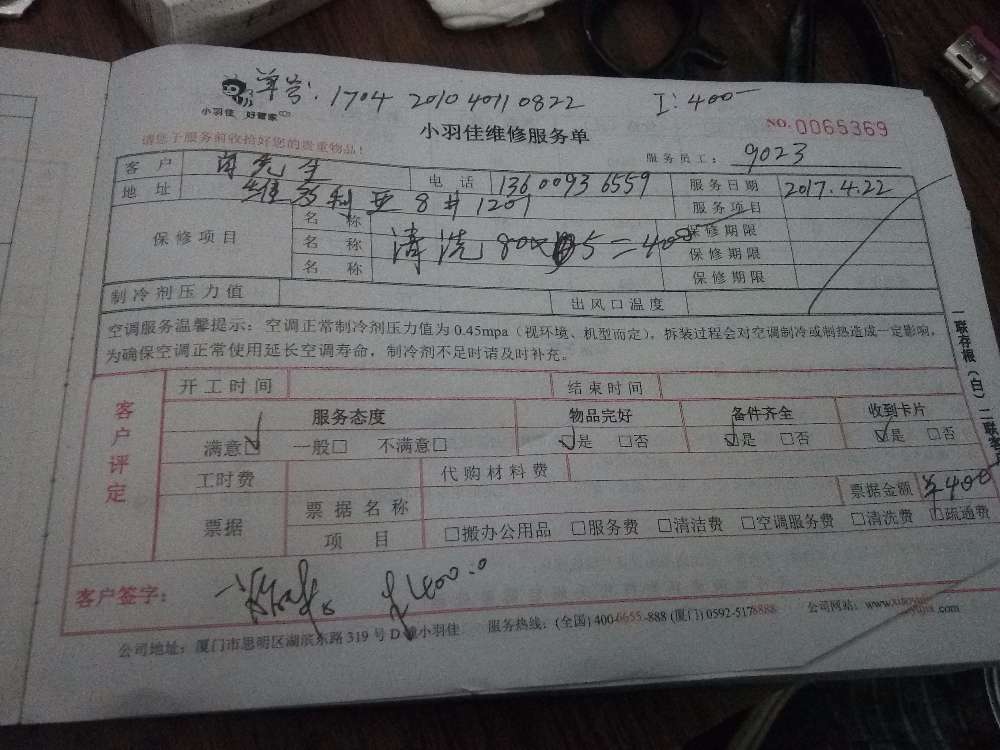 单号：1704 2010 4011 0822 I：400-
小羽佳 好管家
小羽佳维修服务单
NO. 0065369
请您于服务前收拾好您的贵重物品！
服务员工：9023
客户 先生 电话 13600936559 服务日期 2017.4.22
地址 维多利亚8#1201 服务项目
保修项目 名称 保修期限
名称 清洗 80×5=400 保修期限
名称 保修期限
制冷剂压力值 出风口温度
空调服务温馨提示：空调正常制冷剂压力值为0.45mpa（视环境、机型而定），拆装过程会对空调制冷或制热造成一定影响，
为确保空调正常使用延长空调寿命，制冷剂不足时请及时补充。
一联存根（白）二联客户
客户评定
开工时间 结束时间
服务态度 物品完好 备件齐全 收到卡片
满意☑ 一般□ 不满意□ ☑是 □否 ☑是 □否 ☑是 □否
工时费 代购材料费
票据 票据名称 票据金额 ¥400
项目 □搬办公用品 □服务费 □清洁费 □空调服务费 □清洗费 □疏通费
客户签字： 400.0
公司地址：厦门市思明区湖滨东路319号D幢小羽佳 服务热线：(全国) 400-6655-888 (厦门) 0592-5178888 公司网站：www.xiaoyujia.com